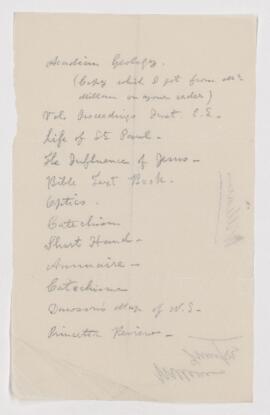 Acadian Geology.
(Copy which I got from Mc
Millan on your order)
Vols Proceedings Inst. C.E.
Life of St Paul -
The Influence of Jesus -
Bible Text Book.
Optics.
Catechism
Short Hand -
Annuaire -
Catechisms
Dawson's Map of N.S. -
Princeton Review -